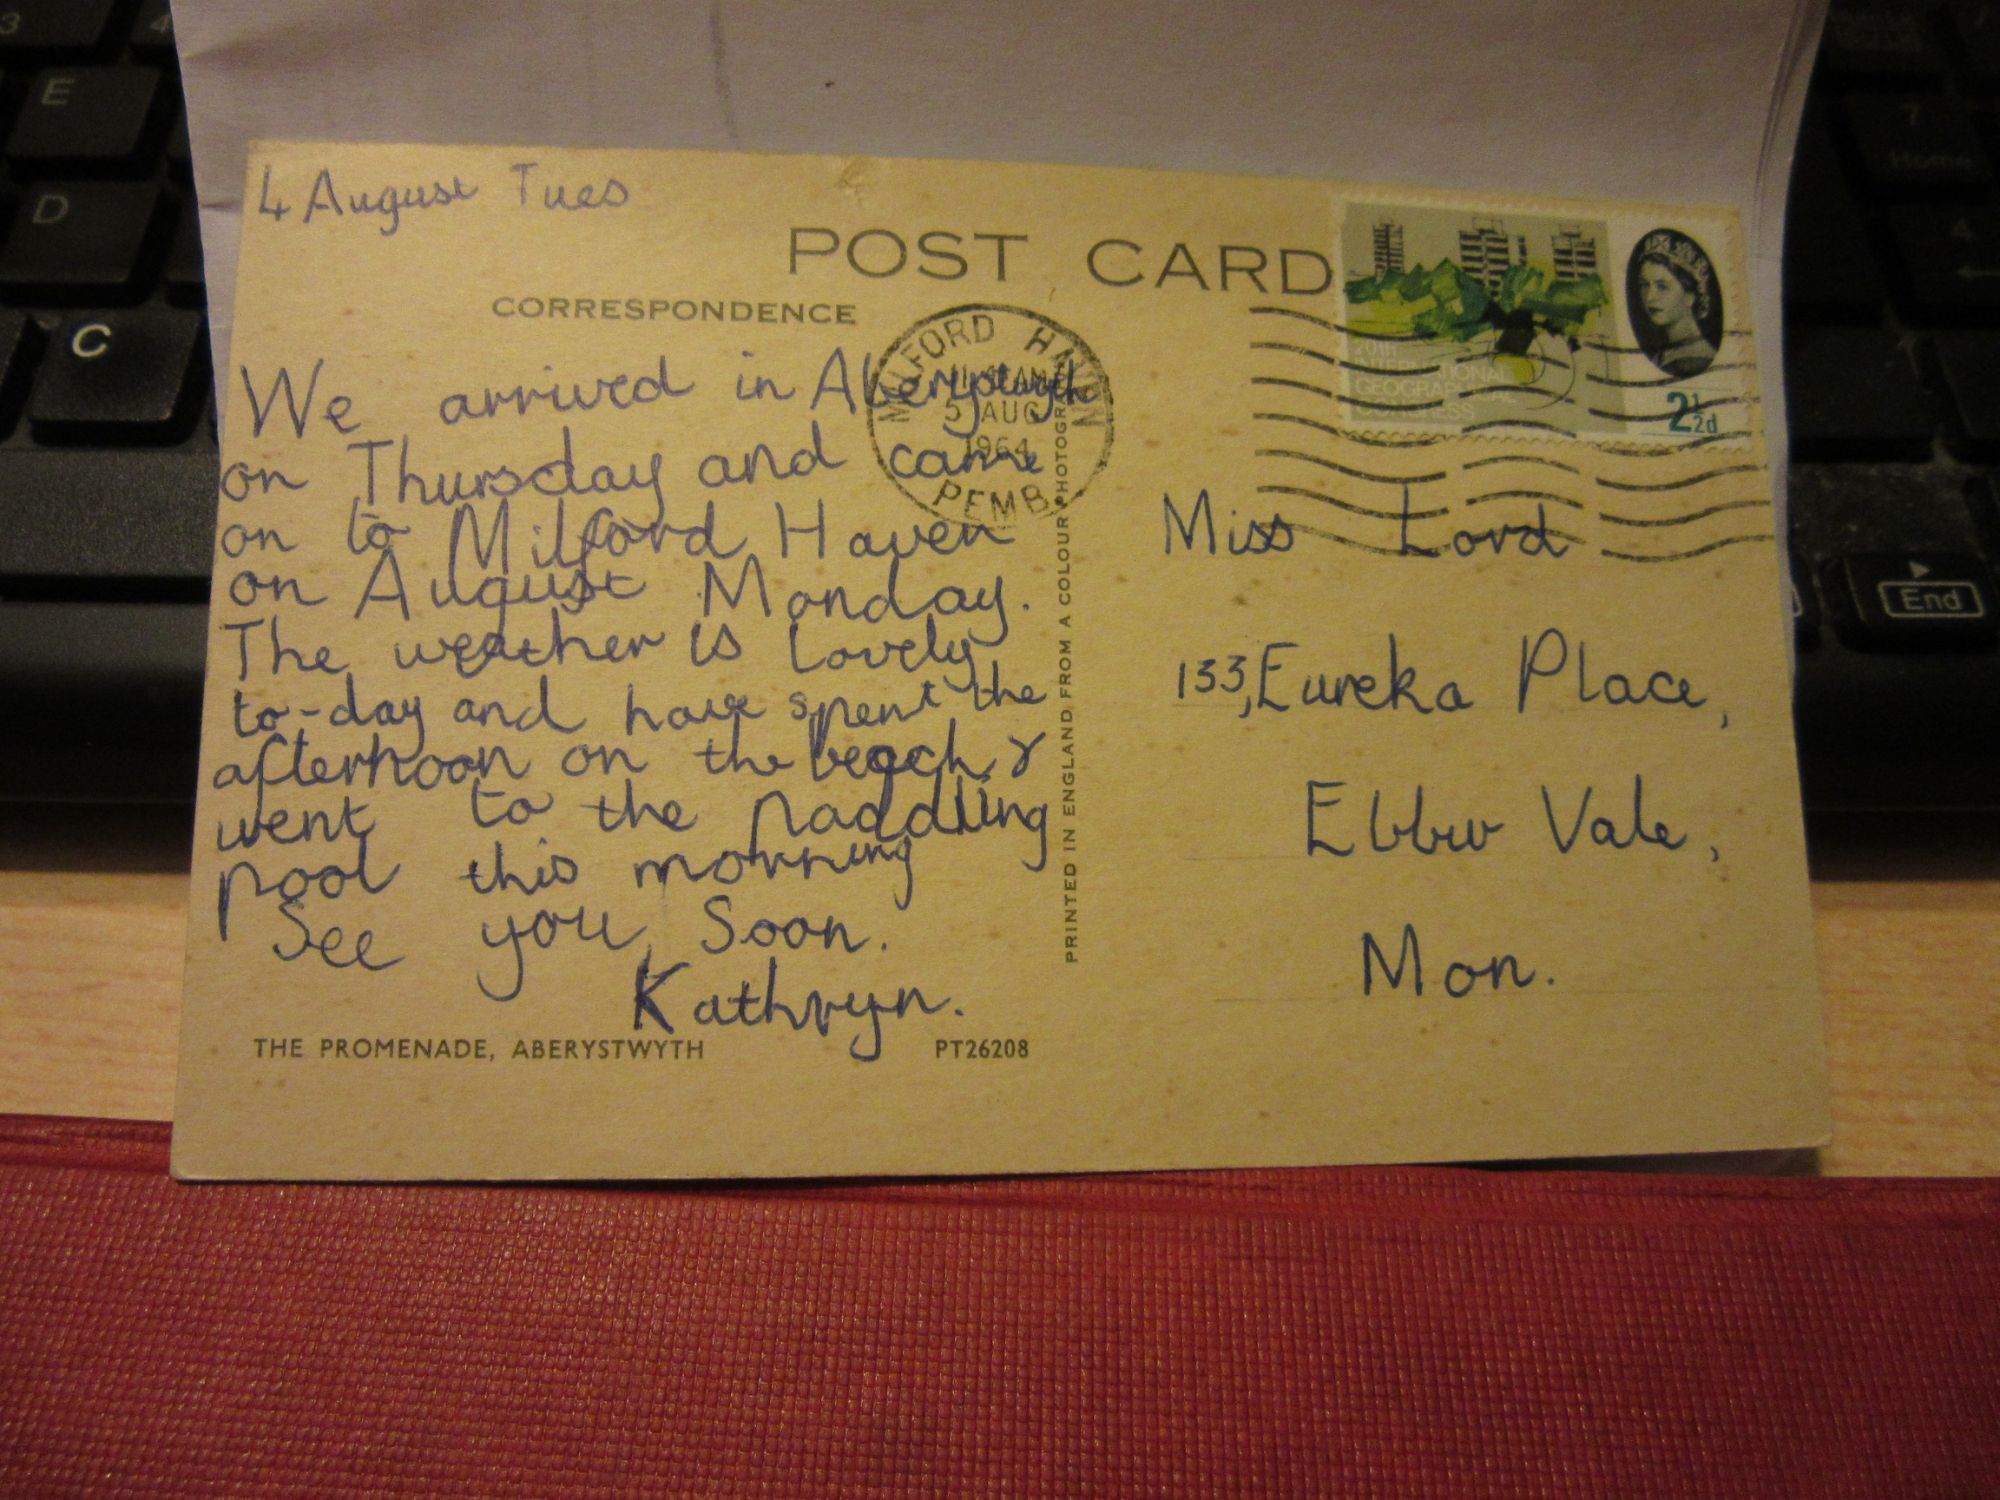 4 August Tues
POST CARD
CORRESPONDENCE
We arrived in Aberystwyth
on Thursday and came
on to Milford Haven
on August Monday.
The weather is lovely
to-day and have spent the
afternoon on the beach &
went to the paddling
pool this morning
See you Soon.
Kathryn.
THE PROMENADE, ABERYSTWYTH PT26208
PRINTED IN ENGLAND FROM A COLOUR PHOTOGRAPH
MILFORD HAVEN
AM
5 AUG
1964
PEMB
20TH
INTERNATIONAL
GEOGRAPHICAL
CONGRESS
2½d
Miss Lord
133, Eureka Place,
Ebbw Vale,
Mon.
3
4
E
D
C
7
Home
4
End